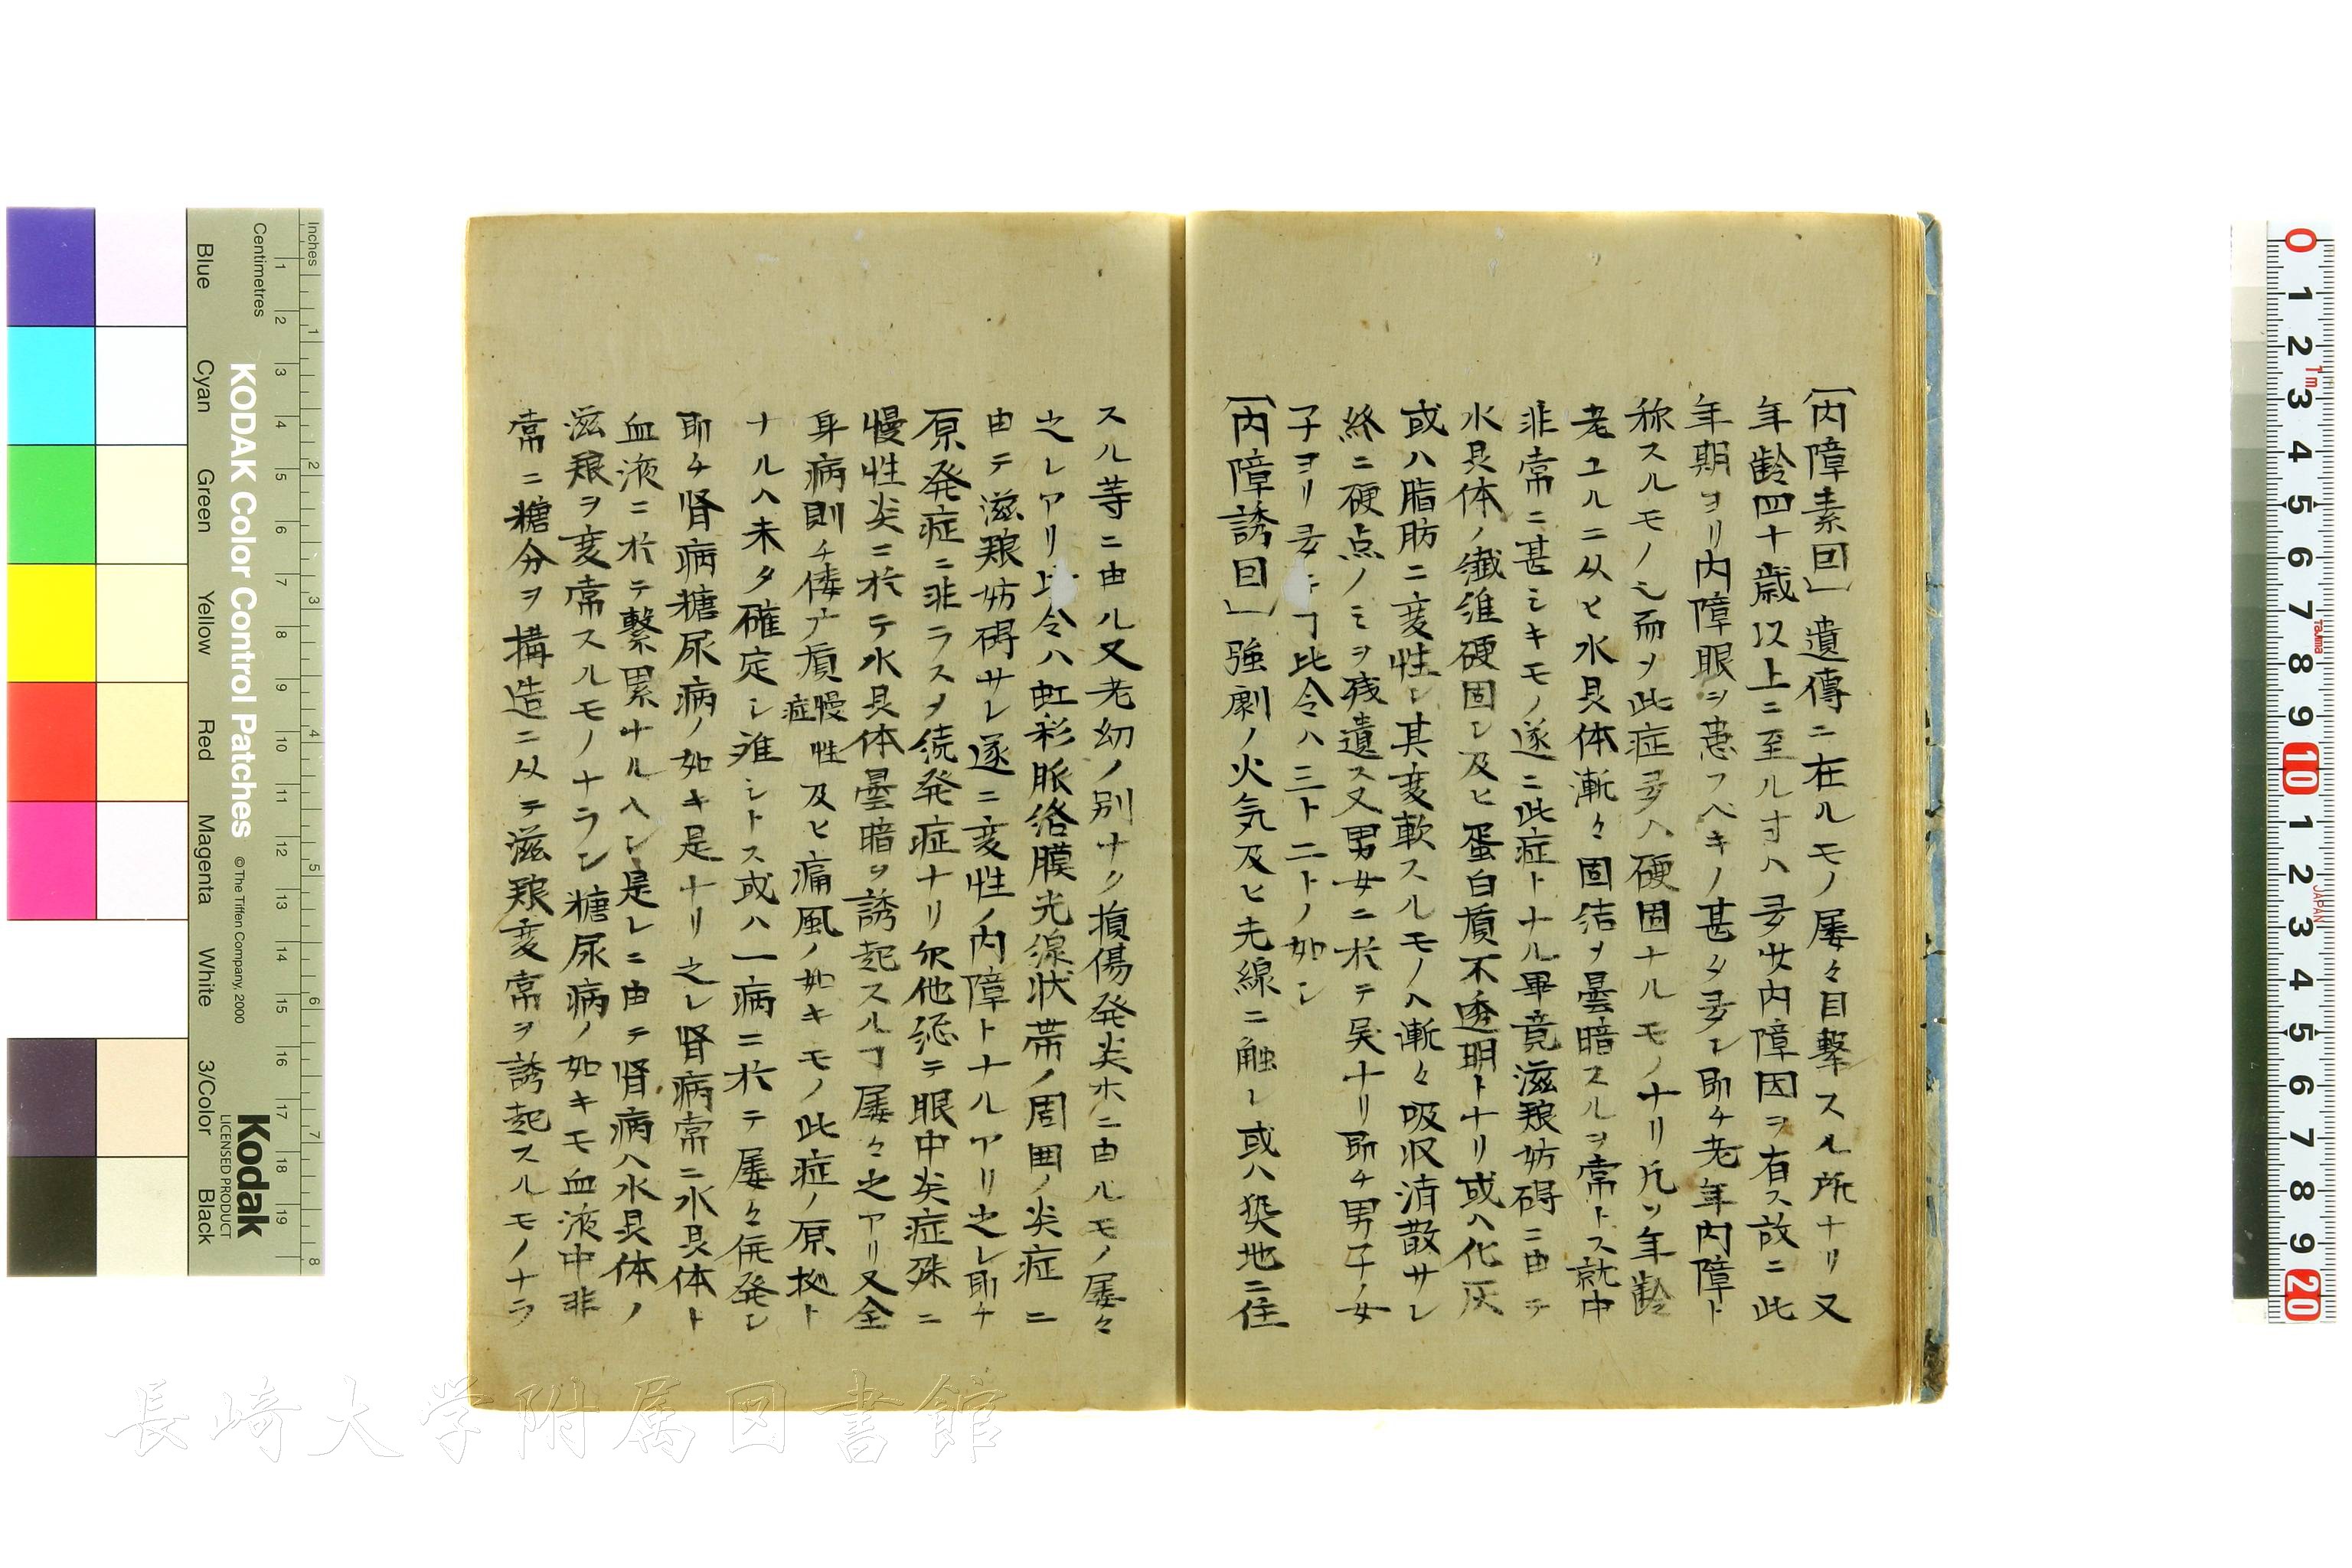 「内障素因」遺傳ニ在ルモノ屡々目撃スル所ナリ又
年齢四十歳以上ニ至ル寸ハ多少内障因ヲ有ス故ニ此
年期ヨリ内障眼ヲ患フベキノ甚タ多シ即チ老年内障ト
称スルモノ乄而ヲ此症多ハ硬固ナルモノナリ凡ソ年齢
老ユルニ从ヒ水晶体漸々固結ヲ曇暗スルヲ常トス就中
非常ニ甚シキモノ遂ニ此症トナル畢竟滋粮妨碍ニ由テ
水晶体ノ纖維硬固シ及ヒ蛋白質不透明トナリ或ハ化灰
或ハ脂肪ニ变性シ其变軟スルモノハ漸々吸収消散サレ
終ニ硬点ノミヲ残遺ス又男女ニ於テ異ナリ即チ男子ノ女
子ヨリ多 ヿ比令ハ三ト二トノ如シ
「内障誘因」強劇ノ火気及ヒ光線ニ触レ或ハ 地ニ住
スル等ニ由ル又老幼ノ別ナク損傷発炎ホニ由ルモノ屡々
之レアリ 令ハ虹彩脈絡膜光線状帯ノ周囲ノ炎症ニ
由テ滋粮妨碍サレ遂ニ变性ノ内障トナルアリ之レ即チ
原発症ニ非ラスヲ続発症ナリ尓他総テ眼中炎症殊ニ
慢性炎ニ於テ水晶体曇暗ヲ誘起スルヿ屡々之アリ又全
身病則チ偻广質慢性症及ヒ痛風ノ如キモノ此症ノ原拠ト
ナルハ未タ確定シ难シトス或ハ一病ニ於テ屡々併発シ
即チ腎病糖尿病ノ如キ是ナリ之レ腎病常ニ水晶体ト
血液ニ於テ繋累ナルヘシ是レニ由テ腎病ハ水晶体ノ
滋粮ヲ变常スルモノナラン糖尿病ノ如キモ血液中非
常ニ糖分ヲ搆造ニ从テ滋粮变常ヲ誘起スルモノナラ
Inches
Centimetres
1 2 3 4 5 6 7 8 9 10 11 12 13 14 15 16 17 18 19
1 2 3 4 5 6 7 8
Blue
Cyan
Green
Yellow
Red
Magenta
White
3/Color
Black
KODAK Color Control Patches
© The Tiffen Company, 2000
Kodak
LICENSED PRODUCT
0 1 2 3 4 5 6 7 8 9 10 1 2 3 4 5 6 7 8 9 20
1m
Tajima
JAPAN
長崎大学附属図書館